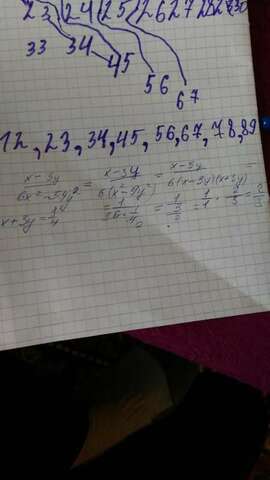 23 24 25 26 27 28
33 34 45 56 67
12, 23, 34, 45, 56, 67, 78, 89
x-3y / 6x²-54y² = x-3y / 6(x²-9y²) = x-3y / 6(x-3y)(x+3y) =
x+3y = 1/4 = 1 / 6·1/4 = 1 / 3/2 = 1/1 · 2/3 = 2/3